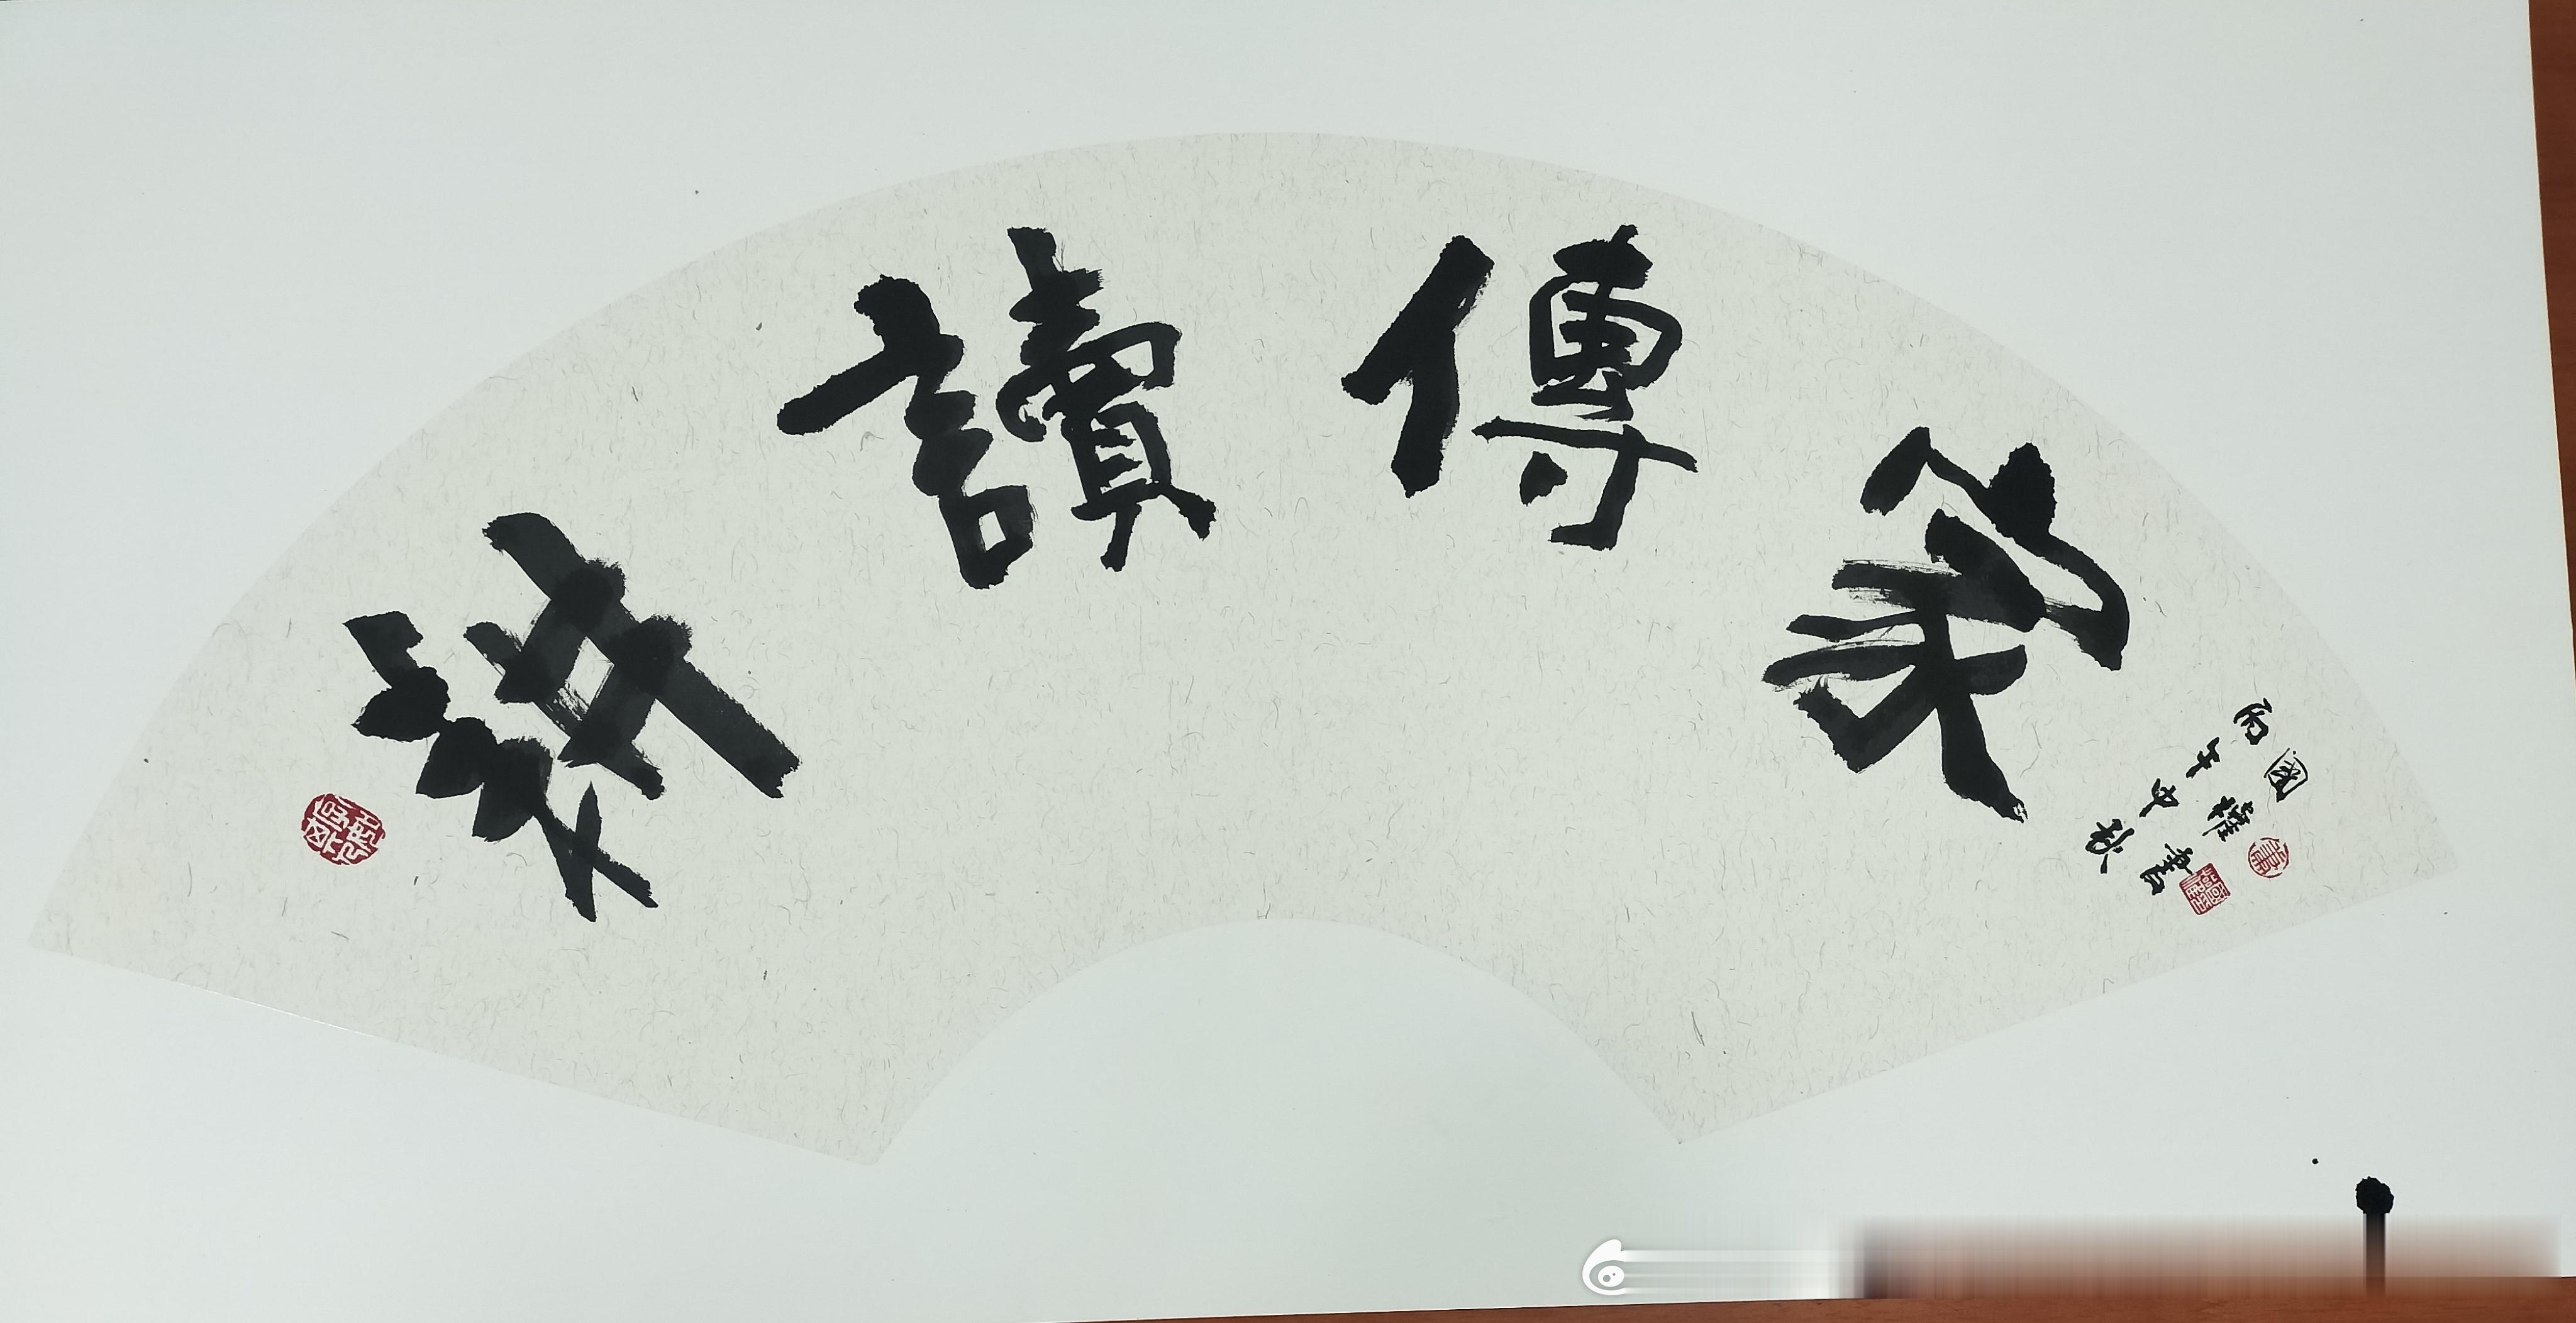 耕讀傳家
丙午中秋
國權書